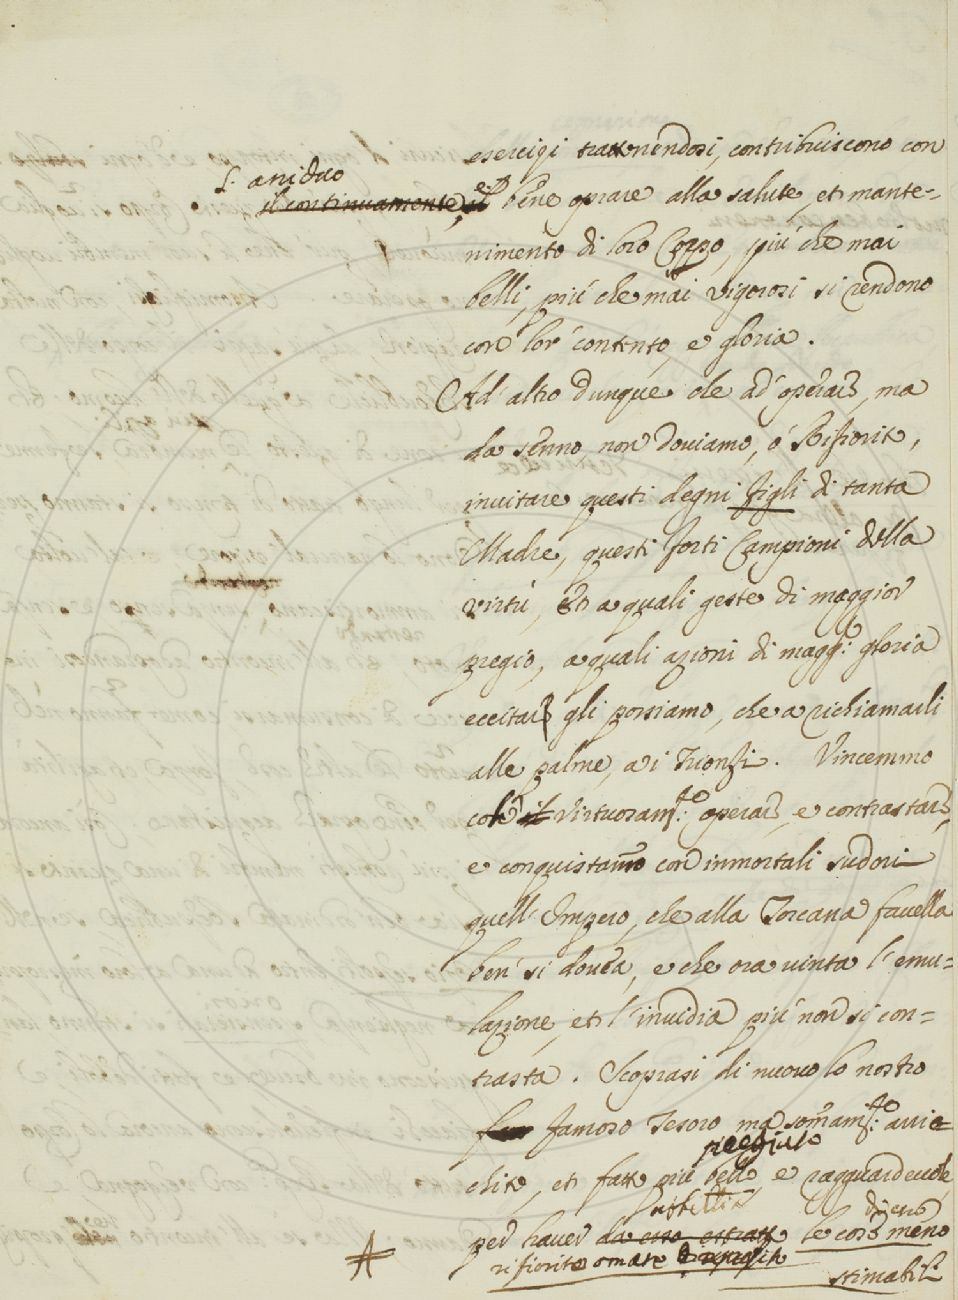 esercizi trattenendosi, contribuiscono con
l'assiduo
il continuamente, e il bene oprare alla salute, et mante=
nimento di loro Corpo, più che mai
belli, più che mai vigorosi si rendono
con lor contento, e gloria.
Ad' altro dunque che ad' operare, ma
da senno non doviamo, ó Rifiorite,
invitare questi degni figli di tanta
Madre, questi forti Campioni della
virtú, et a quali geste di maggior
pregio, a quali azioni di magg:r gloria
eccitare gli possiamo, che a richiamarli
alle palme, a i Trionfi. Vincemmo
col virtuosam:te operare, e contrastare,
e conquistammo con inmortali sudori
quell' Impero, che alla Toscana favella
ben' si doveva, e che ora vinta l'emu=
lazione, et l'invidia più non si con=
trasta. Scoprasi di nuovo lo nostro
famoso Tesoro, ma sommam:te arric=
pregiato
chite, et fatte più belle, e ragguardevole,
per haver da esso estratte le cose meno
rifiorite ornate
stimabili